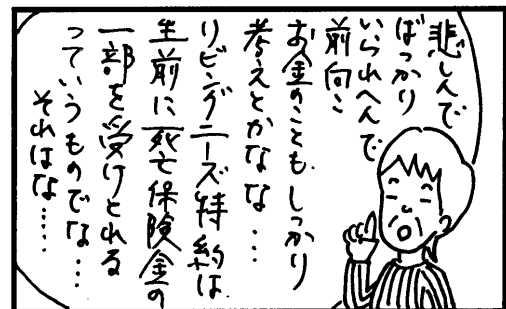 悲しんで
ばっかり
いられへんで
前向こ
お金のことも、しっかり
考えとかなな…
リビングニーズ特約は、
生前に死亡保険金の
一部を受けとれる
っていうものでな…
それはな……